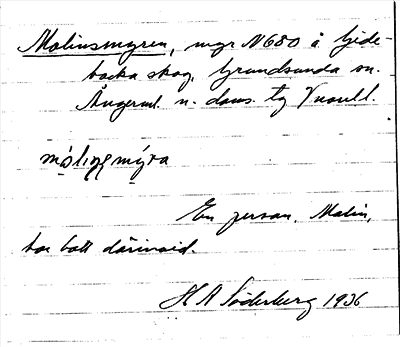 Malinsmyren, myr N 680 å Gide-
backa skog, Grundsunda sn.
Ångerml. n. doms.
məlinsmýra
En person, Malin,
har bott därinvid.
H A Söderberg 1936